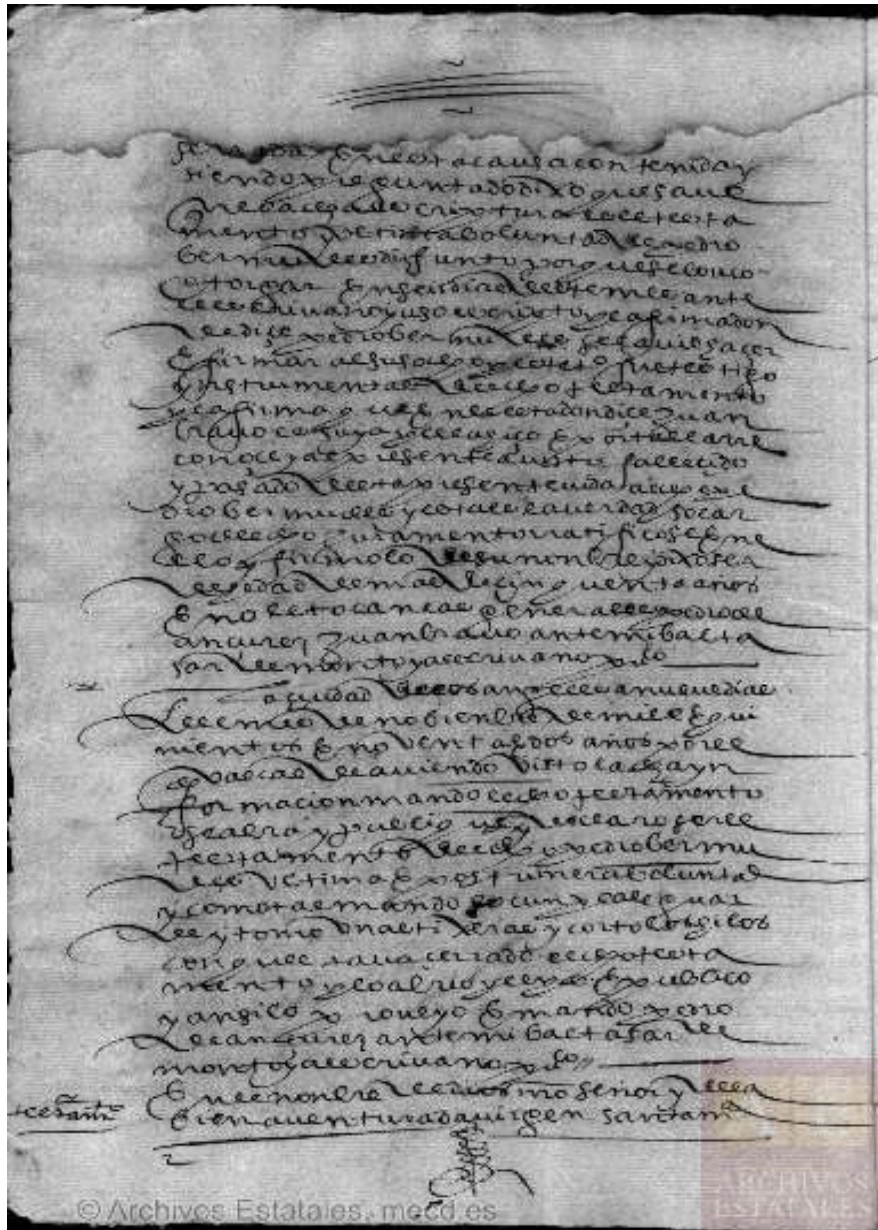 en esta causa contenida y
siendo preguntado dixo que save
escriptura de testa
mento y ultima boluntad de pedro
bermudes difunto porque se lo vio
otorgar en seis dias deste mes ante
escrivano yuso escripto y la firma don
de dise pedro bermudes se la vio haser
e firmar al susodicho este tº fue testigo
ynstrumental del dicho testamento
y la firma que en el esta donde dice juan
bravo es suya y el la hiço e por tal la rre
conoce y al presente a visto fallecido
y pasado desta presente vida al dicho pe
dro bermudes y esta es la verdad so car
go del dicho juramento rratificose en
ello y firmolo de su nonbre dixo ser
de hedad de mas de cinquenta años
e no le tocan las generales pedro de
ançures juan bravo ante mi balta
sar de montoya escrivano puco
a ciudad de los anxeles a nueve dias
del mes de nobienbre de mill e qui
nientos e noventa e dos años
alcalde aviendo visto la dicha yn
formacion mando el dicho testamento
se abra y publique y declaro ser el
testamento del dicho pedro bermu
des ultima e postrimera boluntad
y como tal mando se cunpla e guar
de y tomo unas tixeras y corto los hilos
con que estava cerrado el dicho testa
mento y lo abrio y leyo e publico
y ansi lo proveyo e mando pedro
de ançures ante mi baltasar de
montoya escrivano puco
en el nonbre de dios nro señor y de la
bienaventurada virgen santa ma
testamtº
© Archivos Estatales, mecd.es
ARCHIVOS
ESTATALES